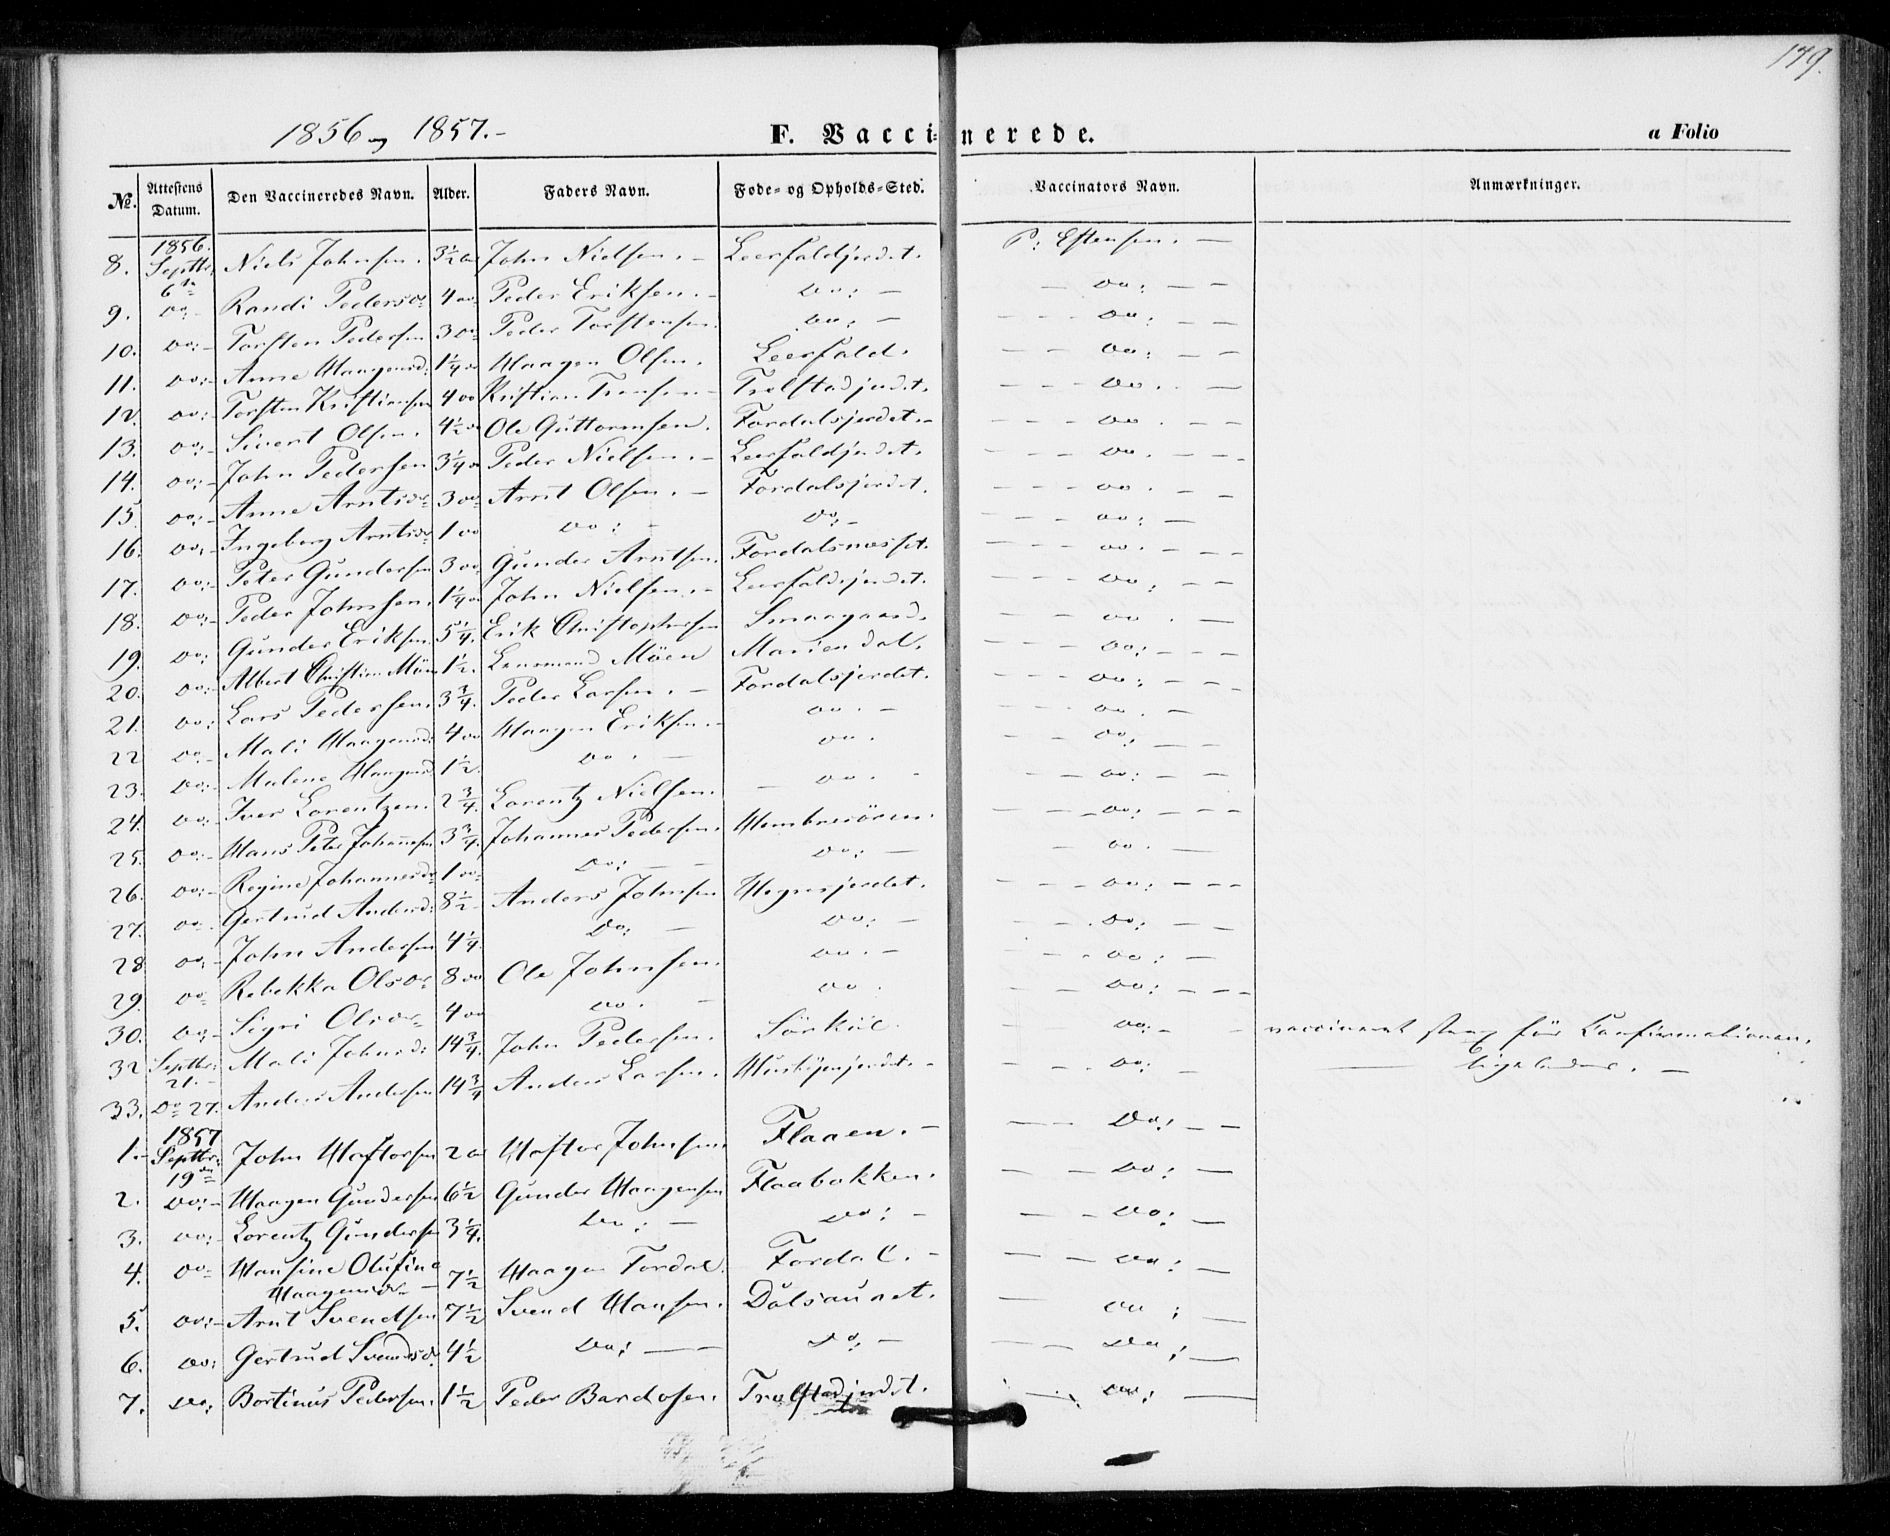 179.
1856 og 1857.-
F. Vaccinerede.
a Folio
No. Attestens Datum. Den Vaccineredes Navn. Alder. Faders Navn. Føde- og Opholds-Sted. Vaccinators Navn. Anmærkninger.
8. 1856. Septbr. 6te Niels Johnsen. 3½ John Nielsen. - Leerfaldjerdet. P: Estensen. -
9. Do - Randi Pedersdr 4 do Peder Eriksen. - Do: - - Do: - -
10. Do: - Torsten Pedersen 3 do Peder Torstensen. Do: - - - - Do: - -
11. Do: - Anne Haagensd: 1¼ do Haagen Olsen. Leerfald. - - Do: - -
12. Do: - Torsten Kristiansen 4 do Kristian - Trolstadjerdet. - - - Do. - -
13. Do: - Sivert Olsen. 4½ do Ole Guttormsen. Fordalsjerdet. - - - - Do - -
14. Do: - John Pedersen 3¼ do Peder Nielsen. - Leerfaldjerdet. - - - Do. - - -
15. Do: - Anne Arntsdr 3 do Arnt Olsen. - Fordalsjerdet. - - - Do. - -
16. Do: - Ingeborg Arntsdr 1 do Do: - Do: - - - - Do: -
17. Do: - Peter Gundersen 3 do Gunder Arntsen. Fordalsnesset. - - - Do. - - -
18. Do: - Peder Johnsen. 1¼ do John Nielsen. - Leerfaldsjerdet. - - - Do: - -
19. Do: Gunder Eriksen 5¼. Erik Christophersen Smaagaard. - - - Do. -
20. Do: - Albert Christian Möen 1½. Lensmand Möen Mariendal. - - - Do: - - -
21. Do: Lars Pedersen. 3¾. Peder Larsen. - Fordalsjerdet. - - - Do: - - -
22 Do - Mali Haagensd: 4 do Haagen Eriksen. - Do. - - - - Do. -
23. Do: - Malene Haagensd 1½. Do. - Do. - - - Do: - -
24. Do: - Iver Lorentzen. 2¾. Lorentz Nielsen. - Do. - - - - Do: - -
25. Do: - Hans Peter Johannesen 3¾. Johannes Pedersen. - - - Do: - - -
26. Do: - Regine Johannesdr 1 do Do: - - Do: - - - Do. -
27. Do - Gertrud Andersd: 8½ Anders Johnsen - - - Do: - - -
28 Do: - John Andersen 4¼. Do: - Do: - - - - Do: - -
29. Do Rebekka Olsdr 8 do Ole Johnsen. Do. - - - Do: -
30. Do: - Sigri Olsdr 4 do Do. - Do. - - - Do: - - -
32 Septbr: 21. - Mali Johnsd: 14¾. John Pedersen. - Do: - - vaccineret strax før Confirmationen,
33. Do 27. Anders Andersen 14¾ Anders Larsen. - - - Do: ligeledes. -
1. - 1857 Septbr: 19de John Haftorsen 2 Haftor Johnsen. Flaaen. - - - Do: - -
2. Do: - Haagen Gundersen 6½ Gunder Haagensen Flaabakken. - - Do: -
3. Do: - Lorentz Gundersen 3¼. Do: - Do: - - - Do: -
4. Do Hansine Olufine Haagensdr - 7½ Haagen Fordal. Fordal. - - - Do: -
5. Do: - Arnt Svendsen 7½ Svend Hansen. Dalsaunet. - Do: -
6. Do: Gertrud Svendsd: 4½ Do: - - Do: - - - Do: -
7. Do: Bortinus Pedersen. 1½ Peder Bardosen. Trolstadjerdet. - - Do: -